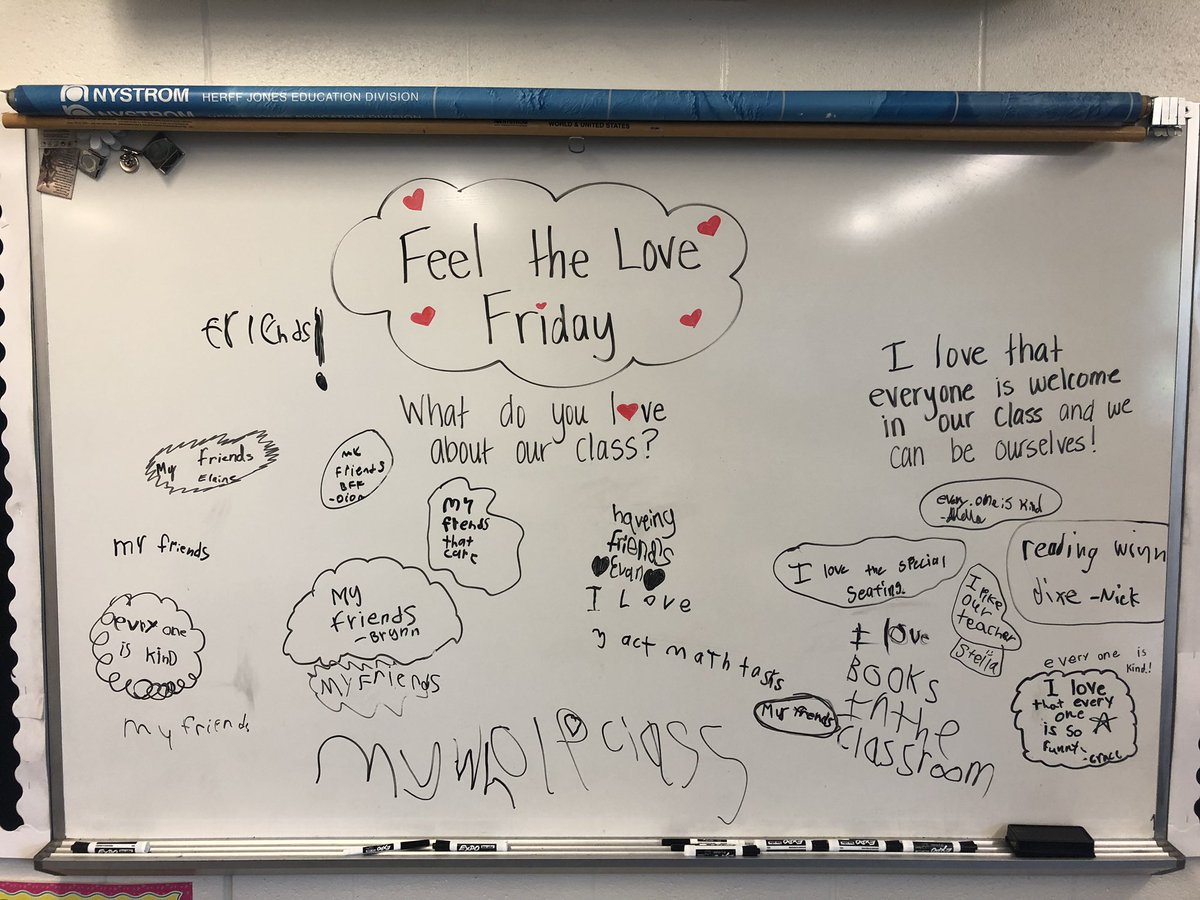 NYSTROM HERFF JONES EDUCATION DIVISION
WORLD & UNITED STATES
Feel the Love
Friday
friends!
What do you l♥ve
about our class?
I love that
everyone is welcome
in our class and we
can be ourselves!
My friends
Elaine
friends
BFF
-Dion
My
frends
that
care
my friends
haveing
friends
Evan
I Love
3 act math tasts
every one is kind
I love the special
seating.
reading winn
dixe -Nick
I like
our
teacher
Stella
My
friends
-Brynn
every one
is kind
My Friends
my friends
my whole class
My frends
I love
BOOKS
in the
classroom
every one is
kind!
I love
that every
one
is so
funny.
-Grace
EXPO